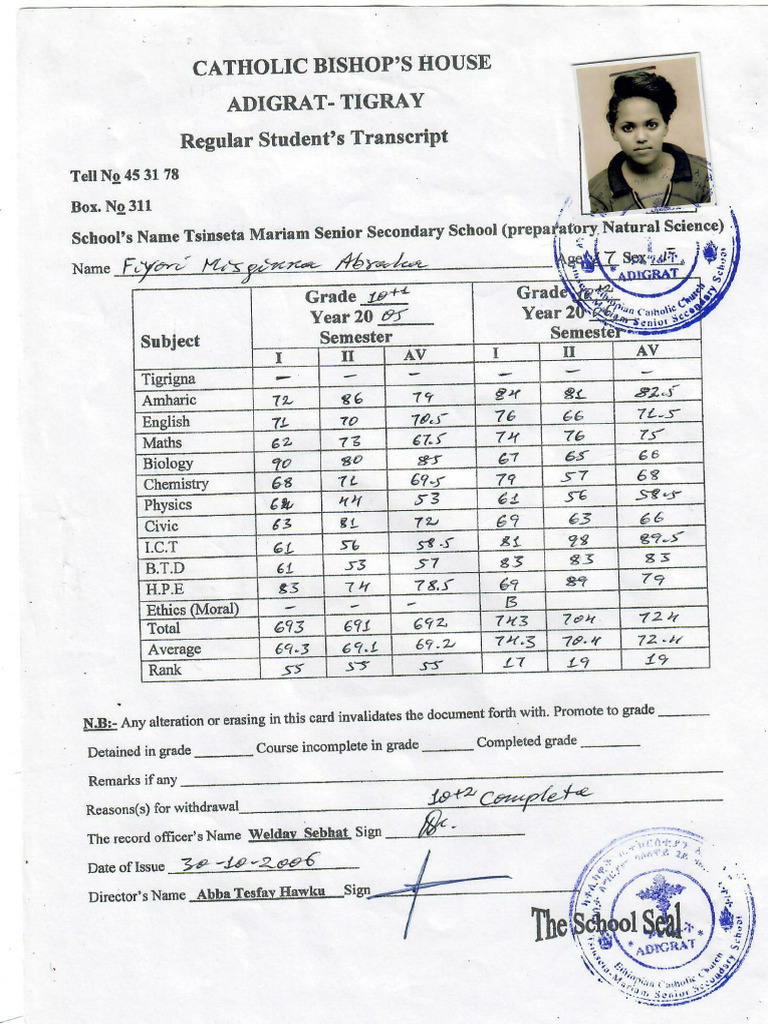 CATHOLIC BISHOP'S HOUSE
ADIGRAT- TIGRAY
Regular Student's Transcript
Tell No 45 31 78
Box. No 311
School's Name Tsinseta Mariam Senior Secondary School (preparatory Natural Science)
Name Fiyori Misginna Abraha Age 17 Sex
ADIGRAT
Ethiopian Catholic Church
Tsinseta-Mariam Senior Secondary School
Subject Grade 10+1 Grade
Year 20 05 Year 20
Semester Semester
I II AV I II AV
Tigrigna – – – – – –
Amharic 72 86 79 84 81 82.5
English 71 70 70.5 76 66 71.5
Maths 62 73 67.5 74 76 75
Biology 90 80 85 67 65 66
Chemistry 68 71 69.5 79 57 68
Physics 62 44 53 61 56 58.5
Civic 63 81 72 69 63 66
I.C.T 61 56 58.5 81 98 89.5
B.T.D 61 53 57 83 83 83
H.P.E 83 74 78.5 69 89 79
Ethics (Moral) – – – B
Total 693 691 692 743 704 724
Average 69.3 69.1 69.2 74.3 70.4 72.4
Rank 55 55 55 17 19 19
N.B:- Any alteration or erasing in this card invalidates the document forth with. Promote to grade
Detained in grade Course incomplete in grade Completed grade
Remarks if any
Reasons(s) for withdrawal 10+2 Complete
The record officer's Name Welday Sebhat Sign
Date of Issue 30-10-2006
Director's Name Abba Tesfay Hawku Sign
The School Seal
* ADIGRAT *
Ethiopian Catholic Church
Tsinseta-Mariam Senior Secondary School